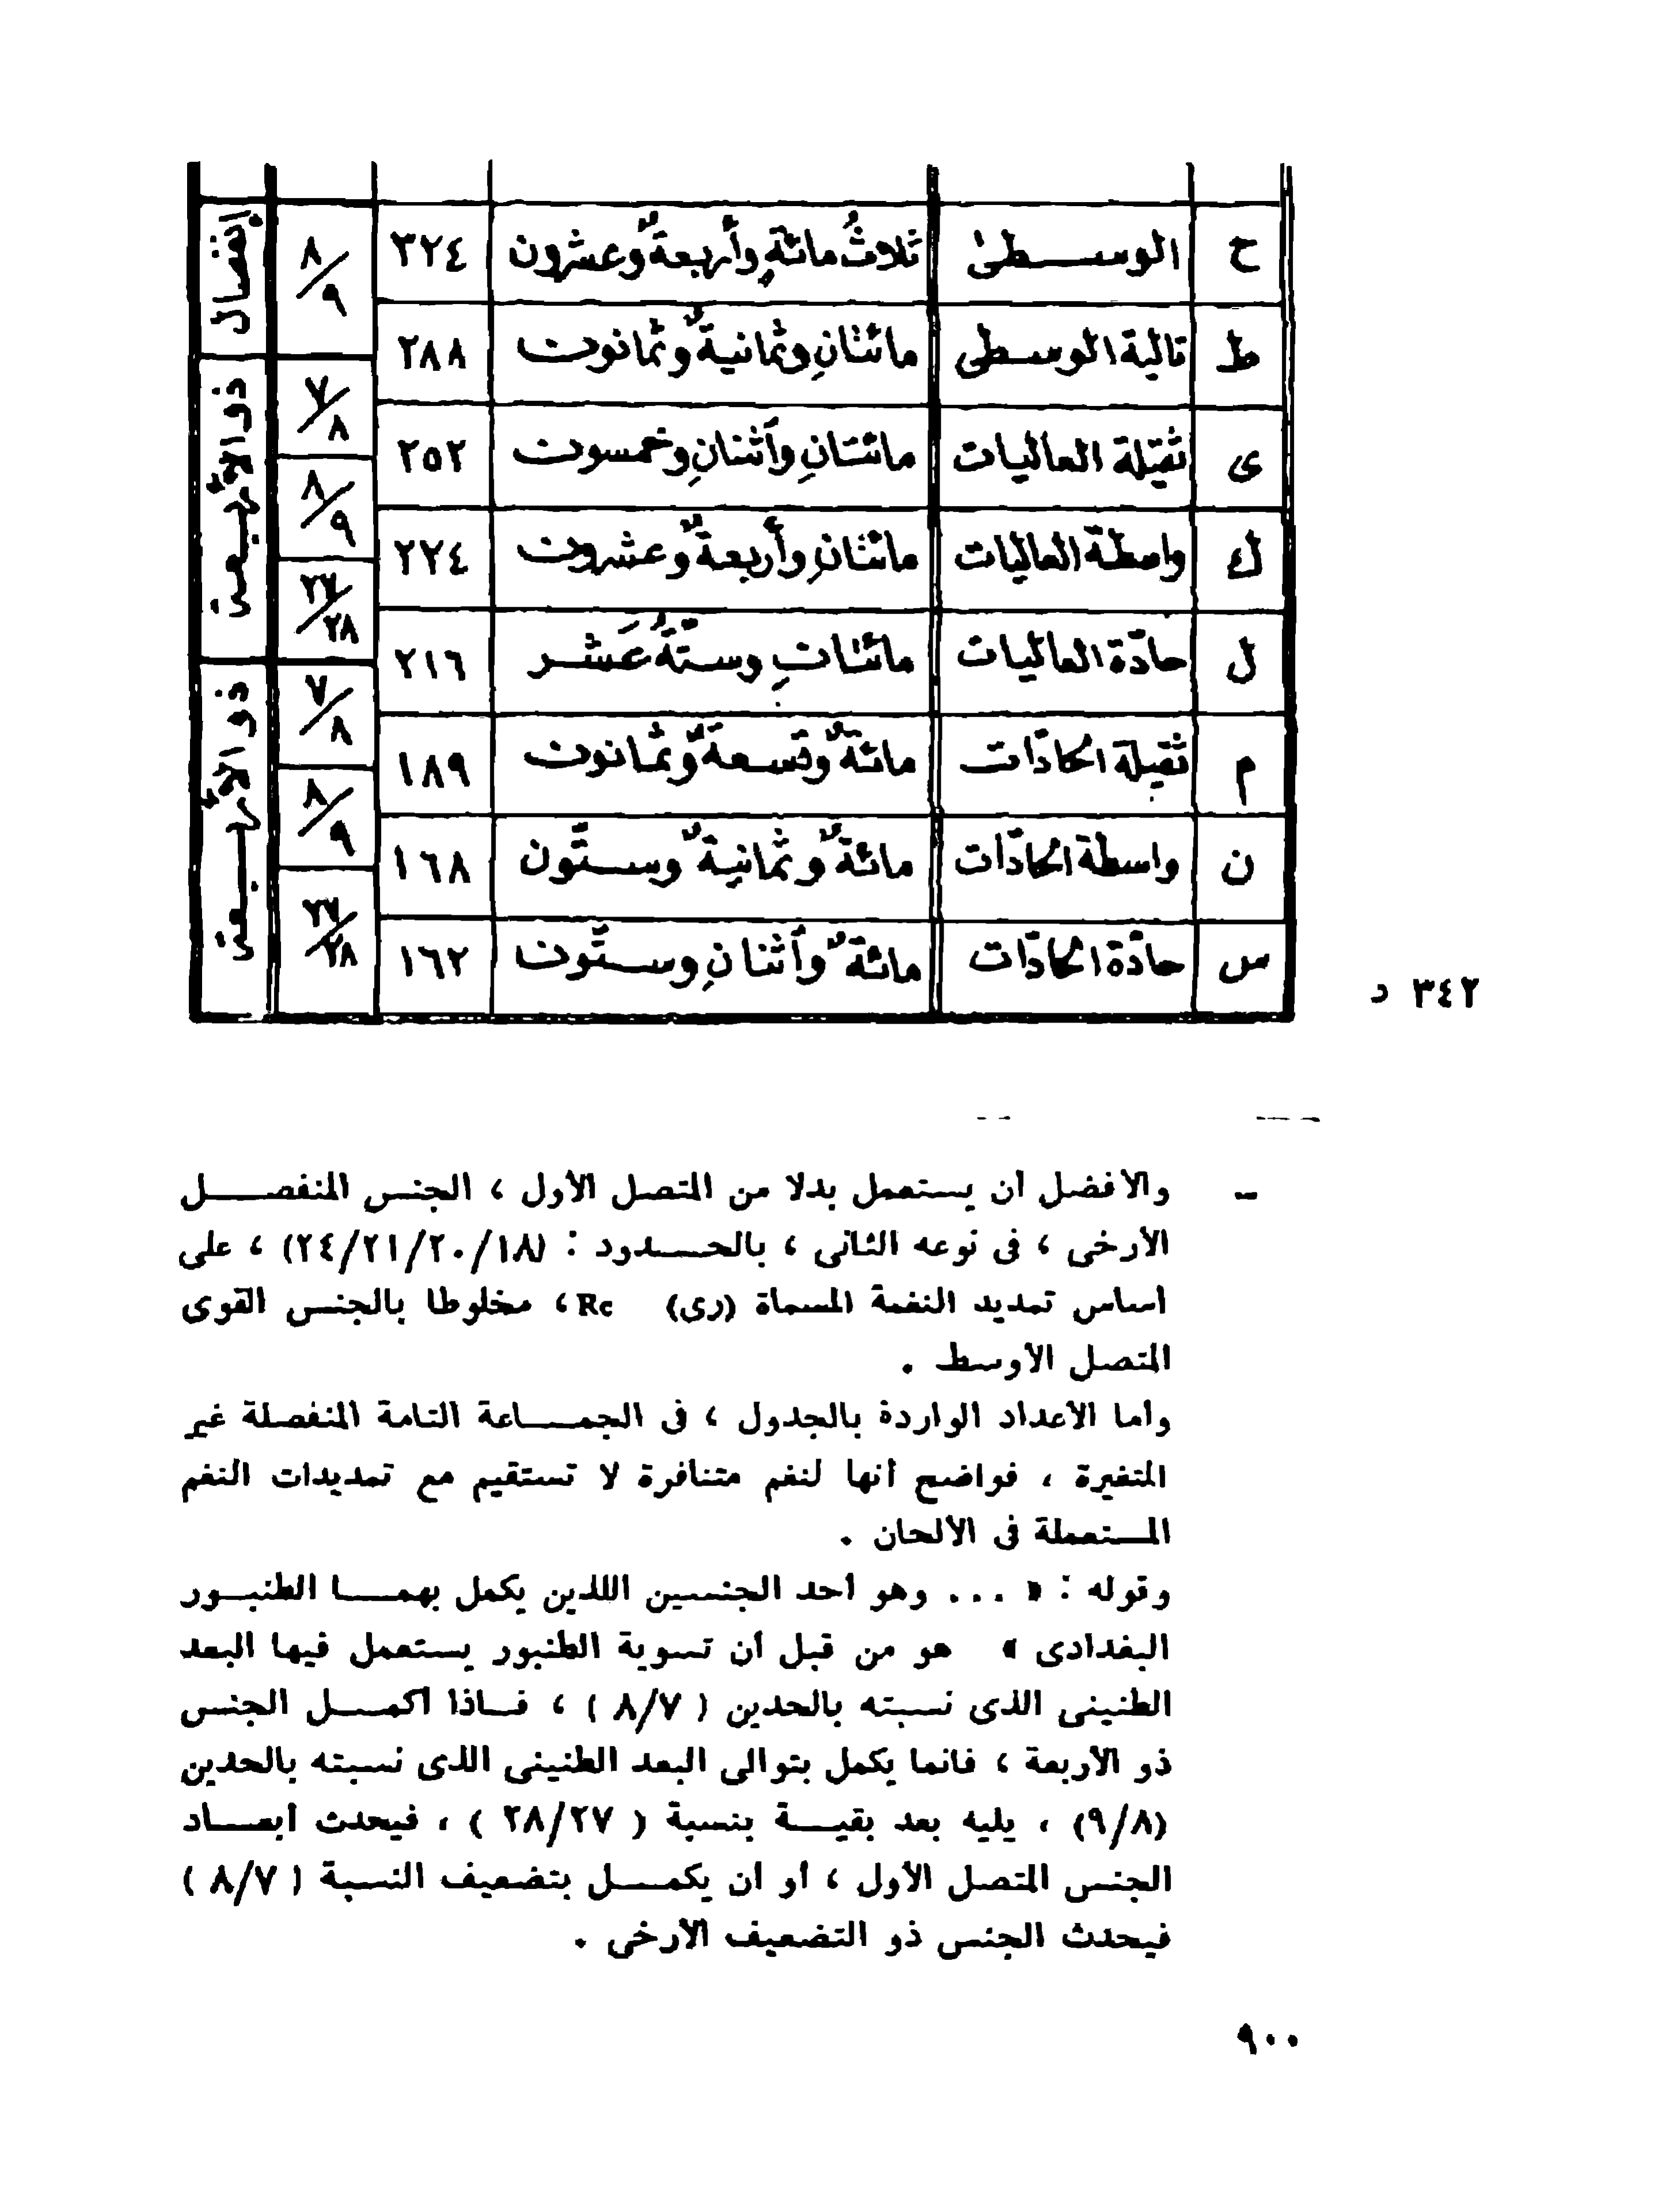 ح الوسطى ثلاثُ مائةٍ وأربعةٌ وعشرون ٣٢٤ ٨/٩ إنفصال
ط تالية الوسطى مائتانِ وثمانيةٌ وثمانون ٢٨٨ ٧/٨ ذو الأربعة
ى ثقيلة العاليات مائتانِ وأثنانِ وخمسون ٢٥٢ ٨/٩
ك واسطة العاليات مائتانِ وأربعةٌ وعشرون ٢٢٤ ٢٧/٢٨
ل حادّة العاليات مائتانِ وستّةَ عَشر ٢١٦ ٧/٨ ذو الأربعة
م ثقيلة الحادّات مائةٌ وتسعةٌ وثمانون ١٨٩ ٨/٩
ن واسطة الحادّات مائةٌ وثمانيةٌ وستّون ١٦٨ ٢٧/٢٨
س حادّة الحادّات مائةٌ وأثنانِ وستّون ١٦٢
٣٤٢ د
– والأفضل أن يستعمل بدلا من المتصل الأول ، الجنس المنفصل
الأرخى ، فى نوعه الثانى ، بالحدود : (٢٤/٢١/٢٠/١٨) ، على
أساس تمديد النغمة المسماة (رى) Re ، مخلوطا بالجنس القوى
المتصل الأوسط .
وأما الأعداد الواردة بالجدول ، فى الجماعة التامة المنفصلة غير
المتغيرة ، فواضح أنها لنغم متنافرة لا تستقيم مع تمديدات النغم
المستعملة فى الألحان .
وقوله : « ... وهو أحد الجنسين اللذين يكمل بهما الطنبور
البغدادى » هو من قبل أن تسوية الطنبور يستعمل فيها البعد
الطنينى الذى نسبته بالحدين ( ٨/٧ ) ، فاذا أكمل الجنس
ذو الأربعة ، فانما يكمل بتوالى البعد الطنينى الذى نسبته بالحدين
(٩/٨) ، يليه بعد بقية بنسبة ( ٢٨/٢٧ ) ، فيحدث أبعاد
الجنس المتصل الأول ، أو أن يكمل بتضعيف النسبة ( ٨/٧ )
فيحدث الجنس ذو التضعيف الأرخى .
٩٠٠